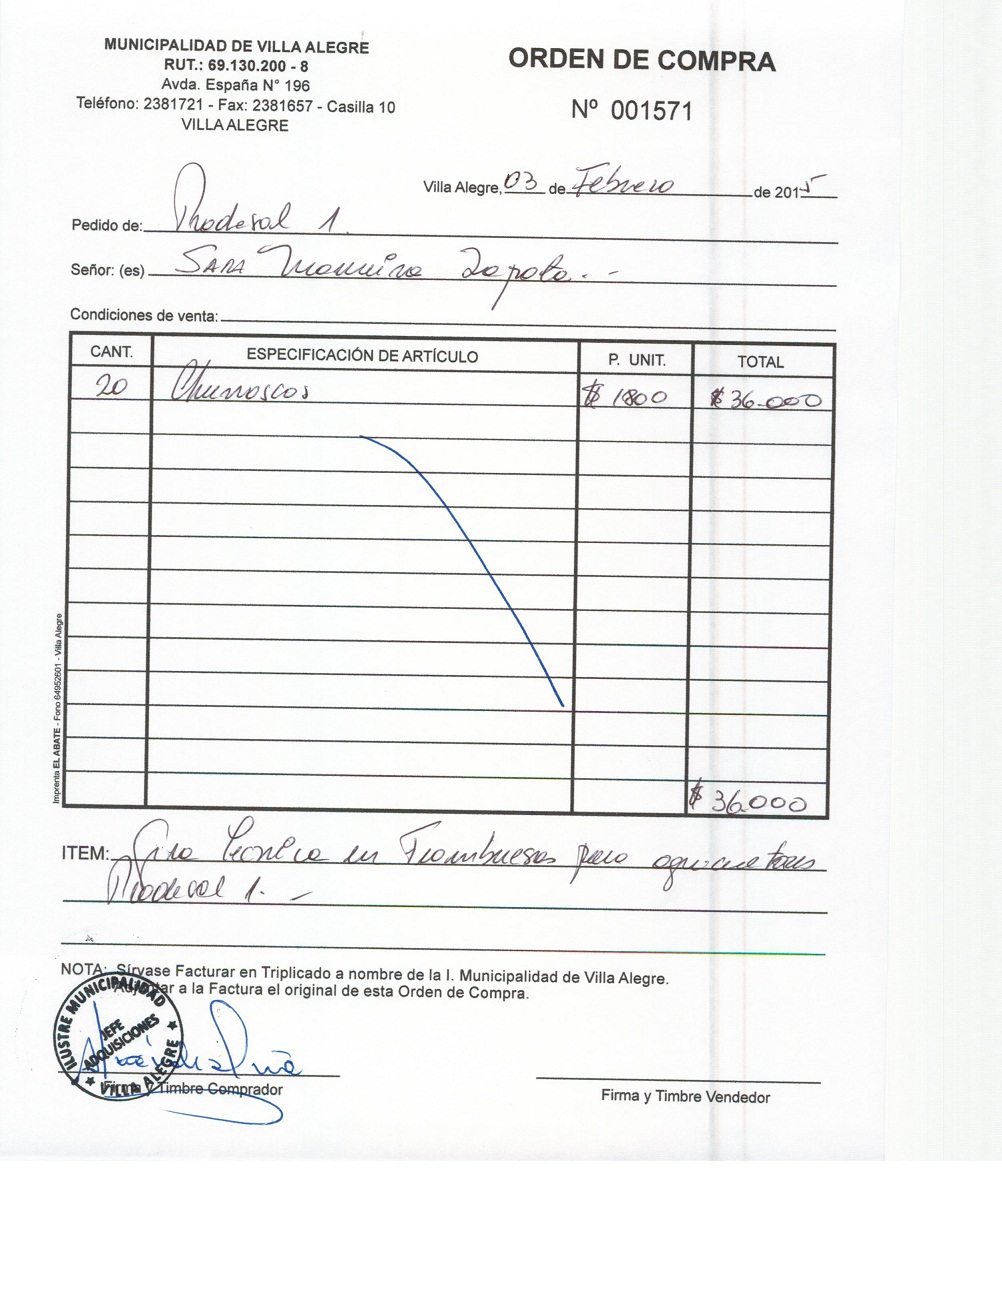 MUNICIPALIDAD DE VILLA ALEGRE
RUT.: 69.130.200 - 8
Avda. España N° 196
Teléfono: 2381721 - Fax: 2381657 - Casilla 10
VILLA ALEGRE
ORDEN DE COMPRA
Nº 001571
Villa Alegre, 03 de Febrero de 2015
Pedido de: Prodesal 1.
Señor: (es) Sara Zapata. -
Condiciones de venta:
CANT. ESPECIFICACIÓN DE ARTÍCULO P. UNIT. TOTAL
20 Churrascos $ 1800 $ 36.000
$ 36.000
Imprenta EL ABATE - Fono 64952601 - Villa Alegre
ITEM: Gira Tecnica en Frambuesas para agricultores
Prodesal 1. -
NOTA: Sírvase Facturar en Triplicado a nombre de la I. Municipalidad de Villa Alegre.
Adjuntar a la Factura el original de esta Orden de Compra.
ILUSTRE MUNICIPALIDAD
JEFE
ADQUISICIONES
VILLA ALEGRE
Firma y Timbre Comprador
Firma y Timbre Vendedor